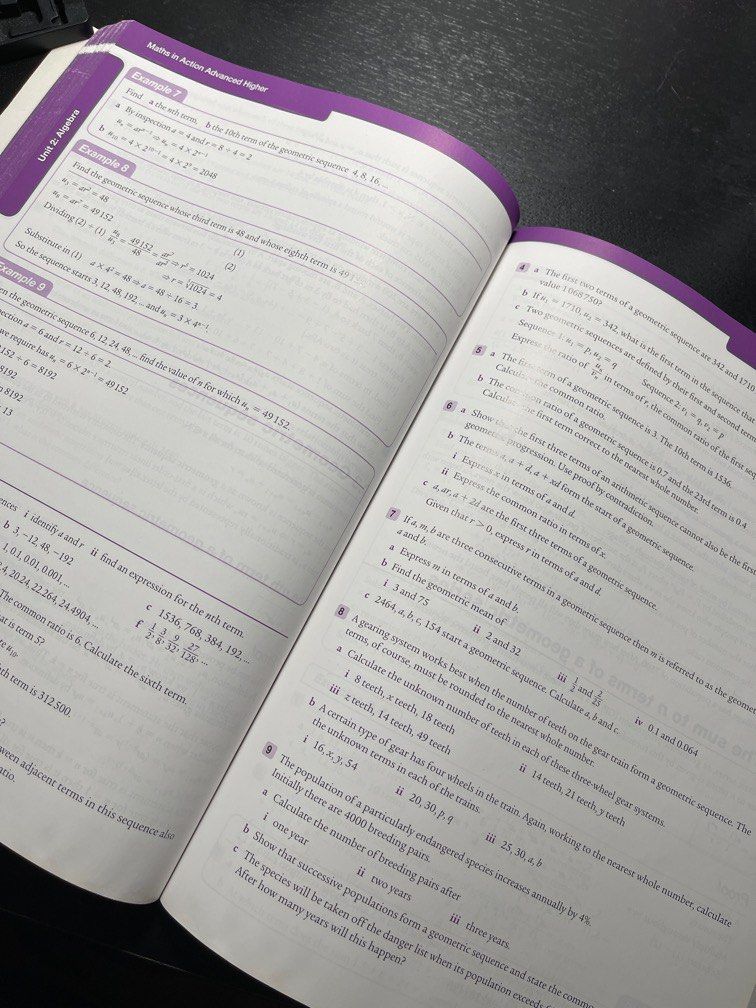 Maths in Action Advanced Higher
Unit 2: Algebra
Example 7
Find a the nth term, b the 10th term of the geometric sequence 4, 8, 16, ...
a By inspection a = 4 and r = 8 ÷ 4 = 2
uₙ = arⁿ⁻¹ ⇒ uₙ = 4 × 2ⁿ⁻¹
b u₁₀ = 4 × 2¹⁰⁻¹ = 4 × 2⁹ = 2048
Example 8
Find the geometric sequence whose third term is 48 and whose eighth term is 49
u₃ = ar² = 48 (1)
u₈ = ar⁷ = 49152 (2)
Dividing (2) ÷ (1) u₈/u₃ = 49152/48 = ar⁷/ar² ⇒ r⁵ = 1024
⇒ r = ⁵√1024 = 4
Substitute in (1) a × 4² = 48 ⇒ a = 48 ÷ 16 = 3
So the sequence starts 3, 12, 48, 192, ... and uₙ = 3 × 4ⁿ⁻¹
Example 9
the geometric sequence 6, 12, 24, 48, ... find the value of n for which uₙ = 49152.
a = 6 and r = 12 ÷ 6 = 2
we require has uₙ = 6 × 2ⁿ⁻¹ = 49152
152 ÷ 6 = 8192
8192
8192
13
i identify a and r ii find an expression for the nth term.
b 3, −12, 48, −192 c 1536, 768, 384, 192, ...
1, 0.1, 0.01, 0.001, ... f 1/2, 3/8, 9/32, 27/128, ...
4, 20.24, 22.264, 24.4904, ...
The common ratio is 6. Calculate the sixth term.
at is term 5?
u₁₀.
term is 312 500.
between adjacent terms in this sequence also
4 a The first two terms of a geometric sequence are 342 and 1710
value 1 068 750?
b If u₁ = 1710, u₂ = 342, what is the first term in the sequence that
c Two geometric sequences are defined by their first and second term
Sequence 1: u₁ = p, u₂ = q Sequence 2: v₁ = q, v₂ = p
Express the ratio of uₙ/vₙ in terms of r, the common ratio of the first
5 a The first term of a geometric sequence is 3. The 10th term is 1536.
Calculate the common ratio.
b The common ratio of a geometric sequence is 0.7 and the 23rd term is 0.4
Calculate the first term correct to the nearest whole number.
6 a Show that the first three terms of an arithmetic sequence cannot also be the first
geometric progression. Use proof by contradiction.
b The terms a, a + d, a + xd form the start of a geometric sequence.
i Express x in terms of a and d.
ii Express the common ratio in terms of x.
c a, ar, a + 2d are the first three terms of a geometric sequence.
Given that r > 0, express r in terms of a and d.
7 If a, m, b are three consecutive terms in a geometric sequence then m is referred to as the
a and b.
a Express m in terms of a and b.
b Find the geometric mean of
i 3 and 75 ii 2 and 32 iii 1/2 and 2/25 iv 0.1 and 0.064
c 2464, a, b, c, 154 start a geometric sequence. Calculate a, b and c.
8 A gearing system works best when the number of teeth on the gear train form a geometric sequence. The
terms, of course, must be rounded to the nearest whole number.
a Calculate the unknown number of teeth in each of these three-wheel gear systems.
i 8 teeth, x teeth, 18 teeth ii 14 teeth, 21 teeth, y teeth
iii z teeth, 14 teeth, 49 teeth
b A certain type of gear has four wheels in the train. Again, working to the nearest whole number, calculate
the unknown terms in each of the trains.
i 16, x, y, 54 ii 20, 30, p, q iii 25, 30, a, b
9 The population of a particularly endangered species increases annually by 4%.
Initially there are 4000 breeding pairs.
a Calculate the number of breeding pairs after
i one year ii two years iii three years.
b Show that successive populations form a geometric sequence and state the
c The species will be taken off the danger list when its population exceeds
After how many years will this happen?